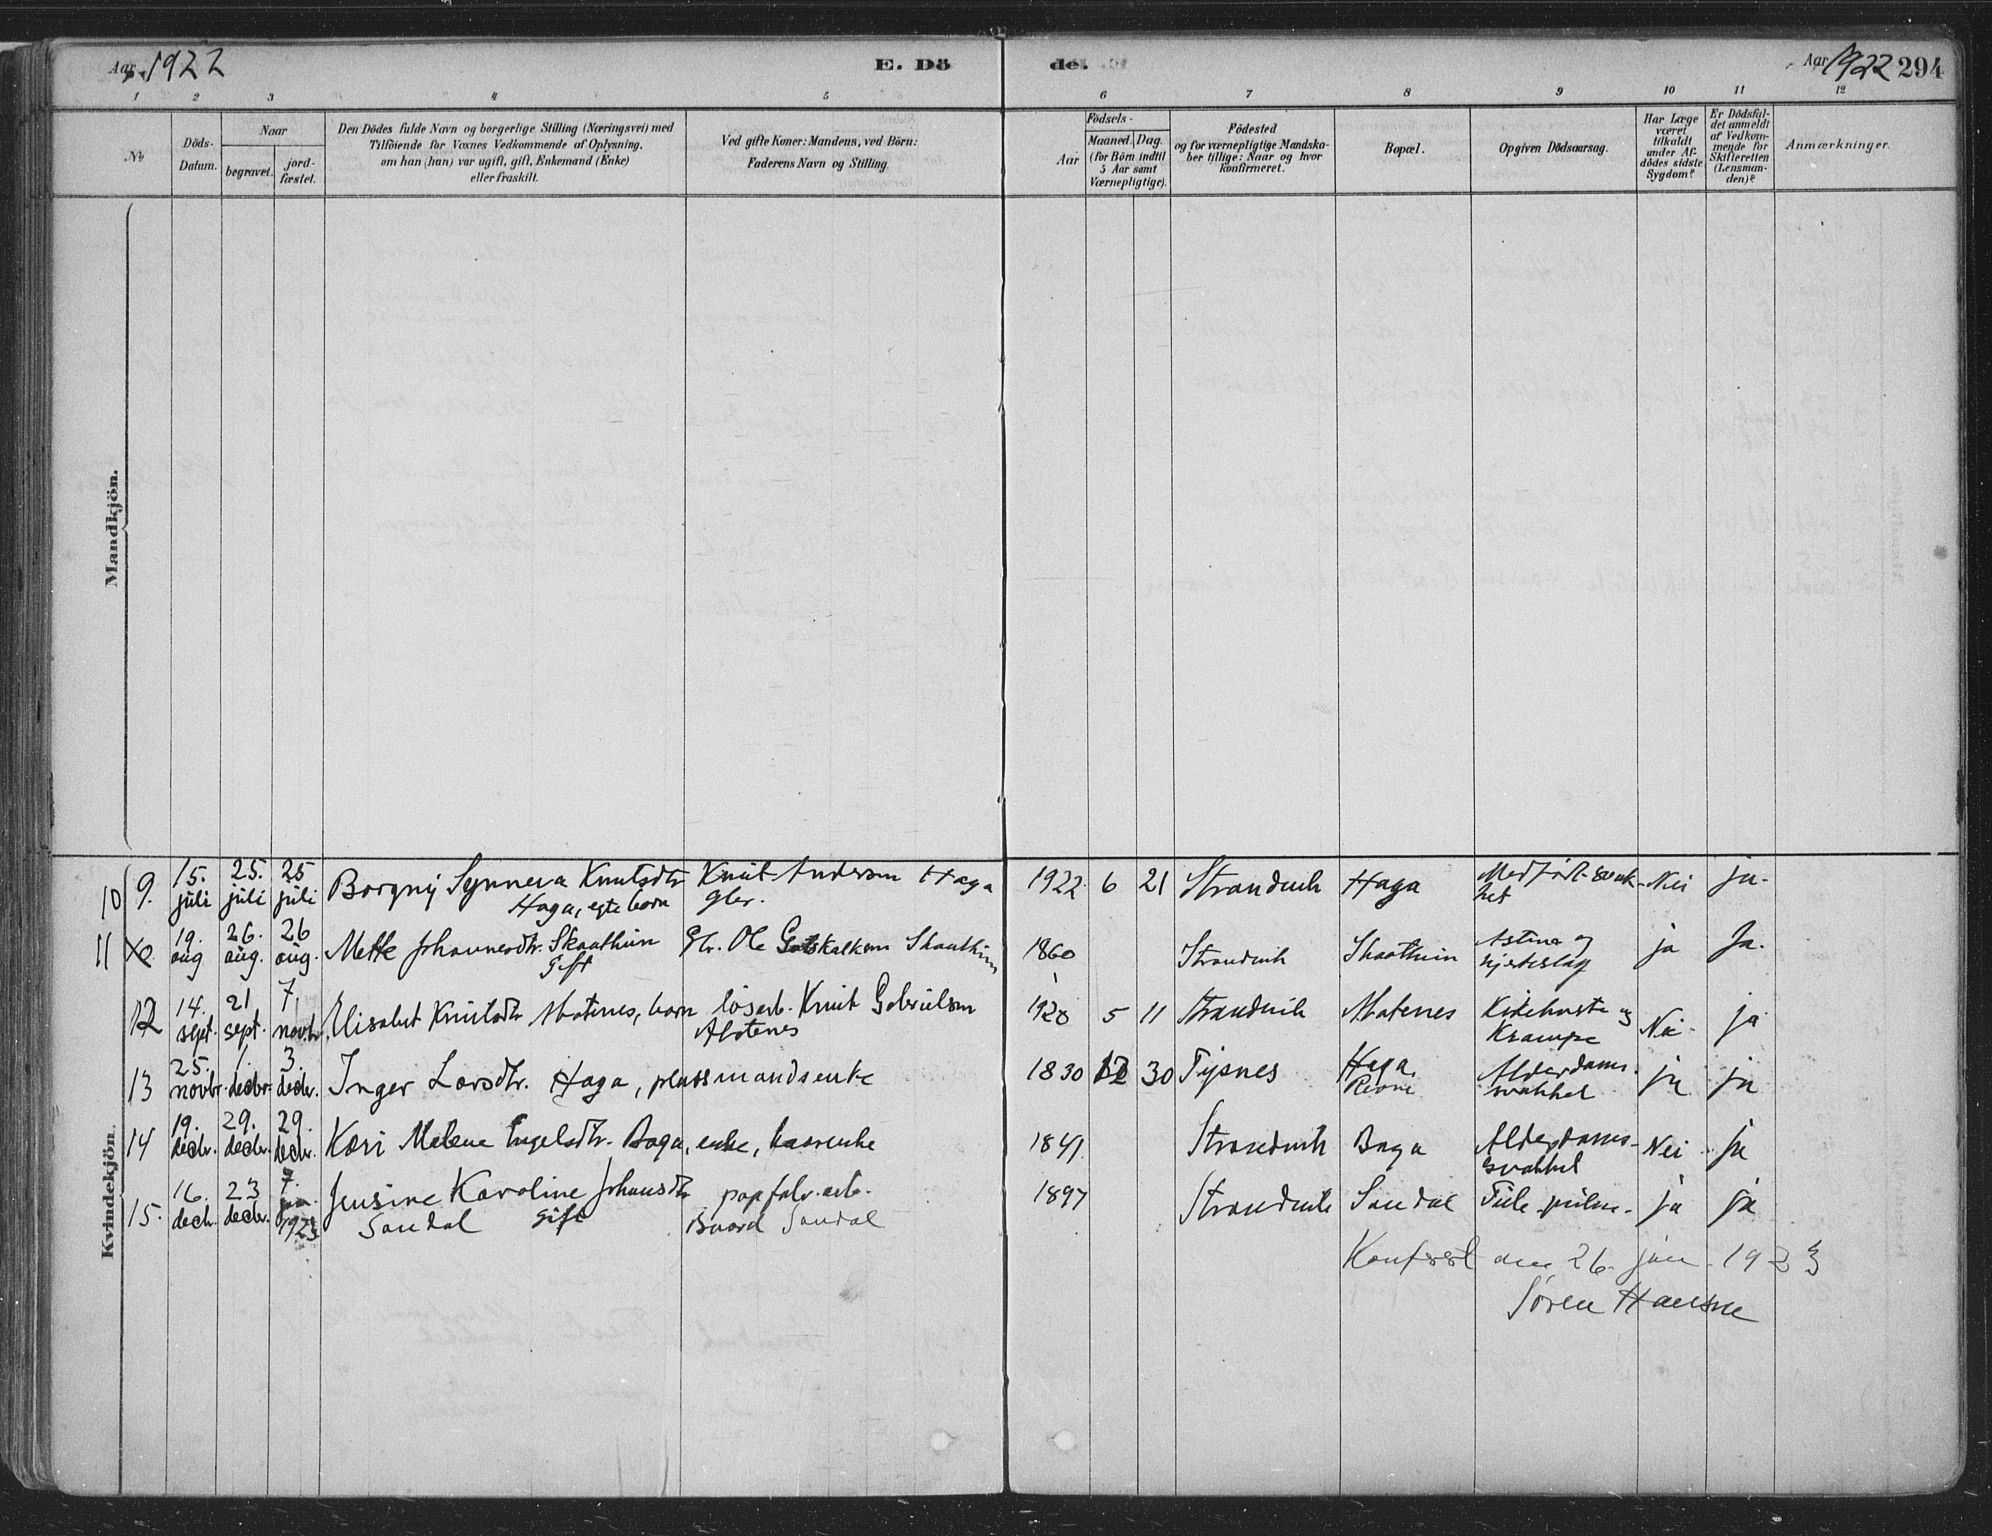 Aar 1922
E. Dö
de.
Aar 1922 294
1 2 3 4 5 6 7 8 9 10 11 12
№
Döds-
Datum.
Naar
begravet.
jord-
fæstet.
Den Dödes fulde Navn og borgerlige Stilling (Næringsvei) med
Tilföiende for Voxnes Vedkommende af Oplysning,
om han (hun) var ugift, gift, Enkemand (Enke)
eller fraskilt.
Ved gifte Koner: Mandens, ved Börn:
Faderens Navn og Stilling.
Födsels-
Aar
Maaned. Dag.
(for Börn indtil
5 Aar samt
Værnepligtige).
Födested
og for værnepligtige Mandska-
ber tillige: Naar og hvor
konfirmeret.
Bopæl.
Opgiven Dödsaarsag.
Har Læge
været
tilkaldt
under Af-
dödes sidste
Sygdom?
Er Dödsfal-
det anmeldt
af Vedkom-
mende for
Skifteretten
(Lensman-
den)?
Anmærkninger.
Mandkjön.
Kvindekjön.
10 9. 15. juli 25. juli 25 juli Borgny Synneva Knutsdtr Haga, egte barn Knut Anderson Haga gbr. 1922 6 21 Strandvik Haga Medfödt svak-het Nei ja.
11 19. aug 26. aug. 26 aug. Mette Johannesdtr. Skaathun Gift Gbr. Ole Gotskalksen Skaathun 1860 Strandvik Skaathun Astma og hjerteslag ja Ja.
12 14. sept. 21 sept. 7. novbr. Elisabet Knutsdtr Abotenes, barn lösarb. Knut Gabrielsen Abotenes 1920 5 11 Strandvik Abotenes Kikehoste og Krampe Nei ja
13 25. novbr. 1. decbr. 3. decbr. Inger Larsdtr. Haga, plassmandsenke 1830 12 30 Tysnes Haga Alderdoms-svakhet ja ja
14 19. decbr. 29. decbr. 29. decbr. Kari Malene Engelsdtr. Baga, enke, kaarenke 1841 Strandvik Baga Alderdoms-svakhet Nei ja
15. 16. decbr. 23 decbr. 7. jan. 1923 Jensine Karoline Johansdtr Sandal Gift papfabr. arb. Baard Sandal 1897 Strandvik Sandal Tub. pulm. ja ja
Konferert den 26. jan. 1923
Sören Hansen